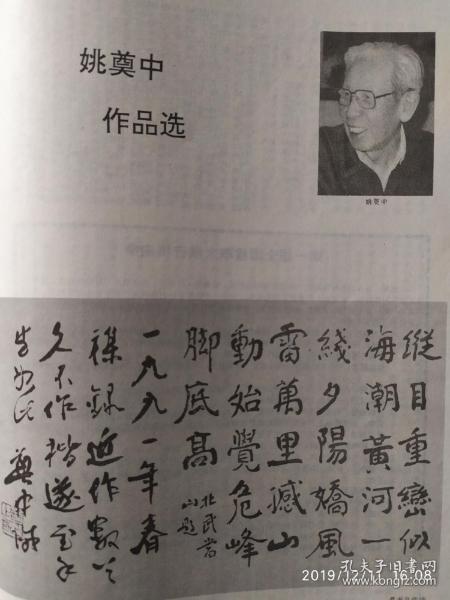 姚奠中
作品选
姚奠中
縱目重巒似
海潮黃河一
綫夕陽嬌風
雷萬里撼山
動始覺危峰
脚底高
北武當
山題
一九九一年春
襍録近作數
久不作楷遂至手
如此 奠中
2019/12/11 16:08
孔夫子旧书网